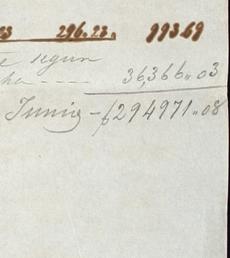 296.23, 993.69
e segun
cha — — 36,366"03
Junio — $294971"08